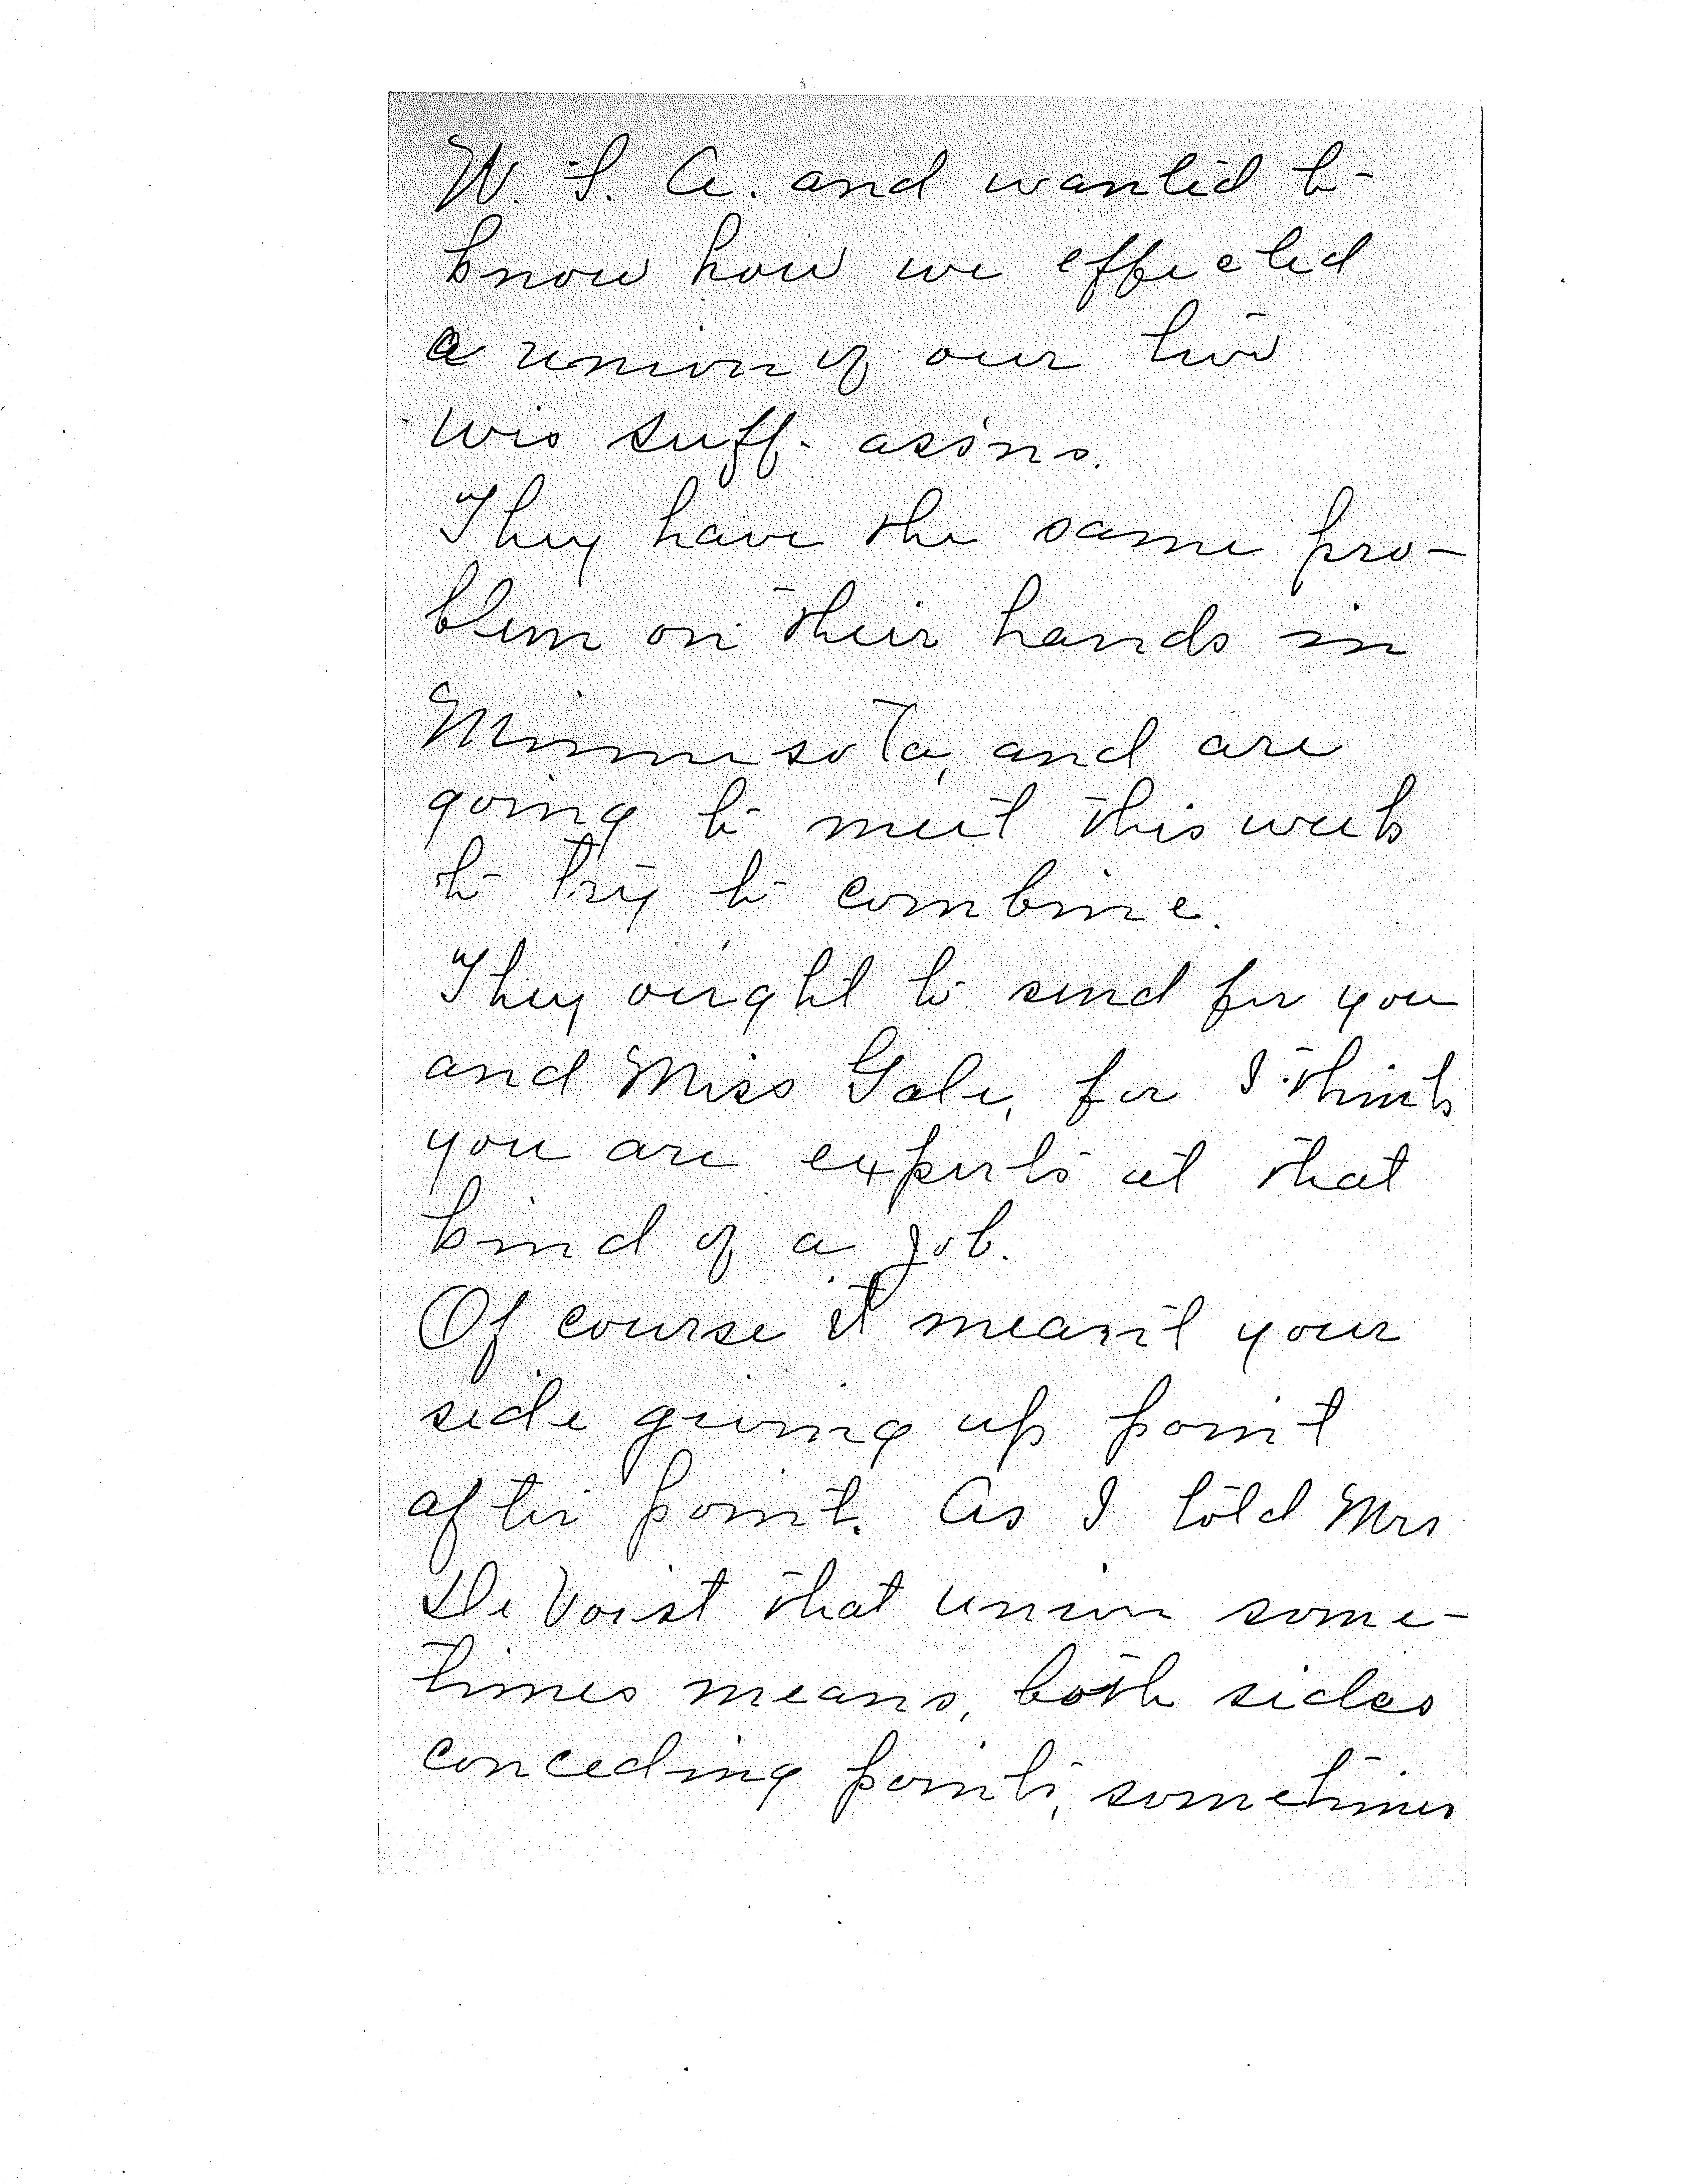 W. S. A. and wanted to
know how we effected
a union of our two
Wis suff. ass'ns.
They have the same pro-
blem on their hands in
Minnesota, and are
going to meet this week
to try to combine.
They ought to send for you
and Miss Gale, for I think
you are experts at that
kind of a job.
Of course it meant your
side giving up point
after point. As I told Mrs
De Voist that union some-
times means, both sides
conceding points, sometimes